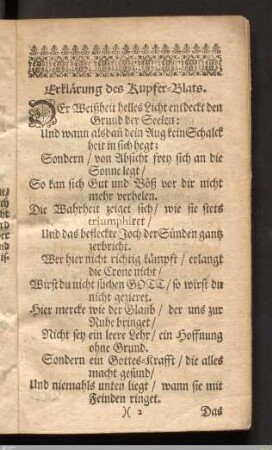 Erklärung des Kupfer-Blats.
DEr Weißheit helles Licht entdeckt den
Grund der Seelen:
Und wann alsdañ dein Aug kein Schalck
heit in sich hegt:
Sondern / von Absicht frey sich an die
Sonne legt /
So kan sich Gut und Böß vor dir nicht
mehr verhelen.
Die Wahrheit zeiget sich / wie sie stets
triumphiret /
Und das befleckte Joch der Sünden gantz
zerbricht.
Wer hier nicht richtig kämpft / erlangt
die Crone nicht /
Wirst du nicht suchen GOTT / so wirst du
nicht gezieret.
Hier mercke wie der Glaub / der uns zur
Ruhe bringet /
Nicht sey ein leere Lehr / ein Hoffnung
ohne Grund.
Sondern ein Gottes-Krafft / die alles
macht gesund /
Und niemahls unten liegt / wann sie mit
Feinden ringet.
)( 2 Das